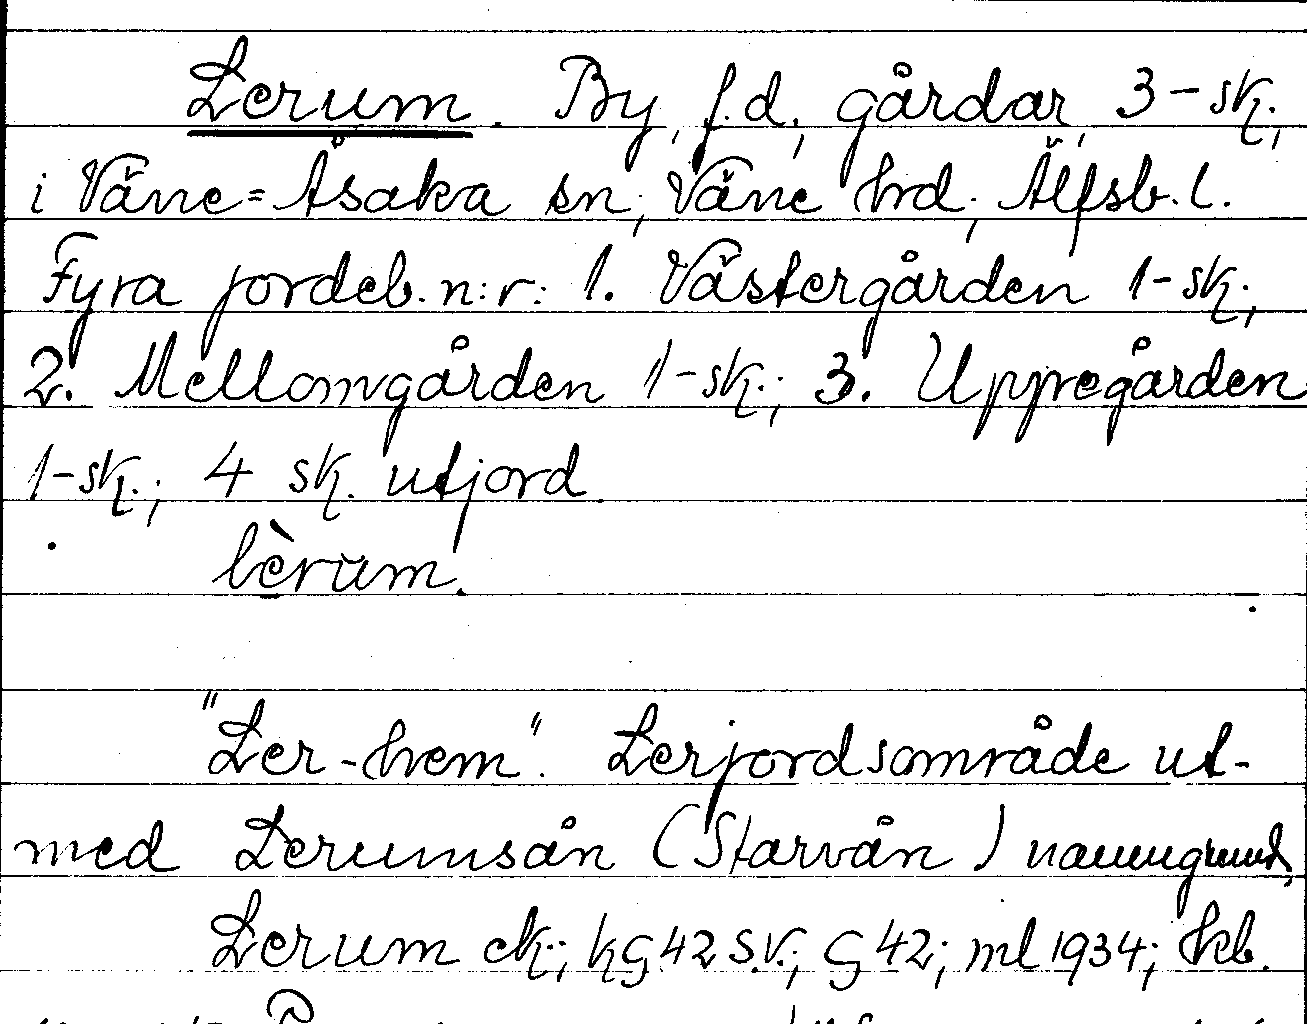 Lerum. By, f.d., gårdar, 3-sk.,
i Väne=Åsaka sn, Väne hrd, Älfsb. l.
Fyra jordeb. n:r: 1. Västergården 1-sk.,
2. Mellomgården 1-sk.; 3. Uppregården
1-sk.; 4 sk. utjord.
lèrum.
"Ler-hem". Lerjordsområde ut-
med Lerumsån (Starvån) namngrund,
Lerum ek; kG 42 S.V.; G 42; ml 1934; hb.